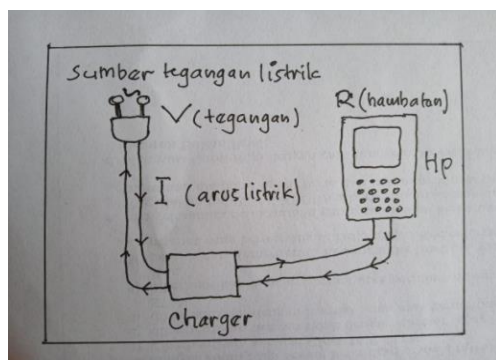 Sumber tegangan listrik
V (tegangan)
R (hambatan)
Hp
I (arus listrik)
Charger